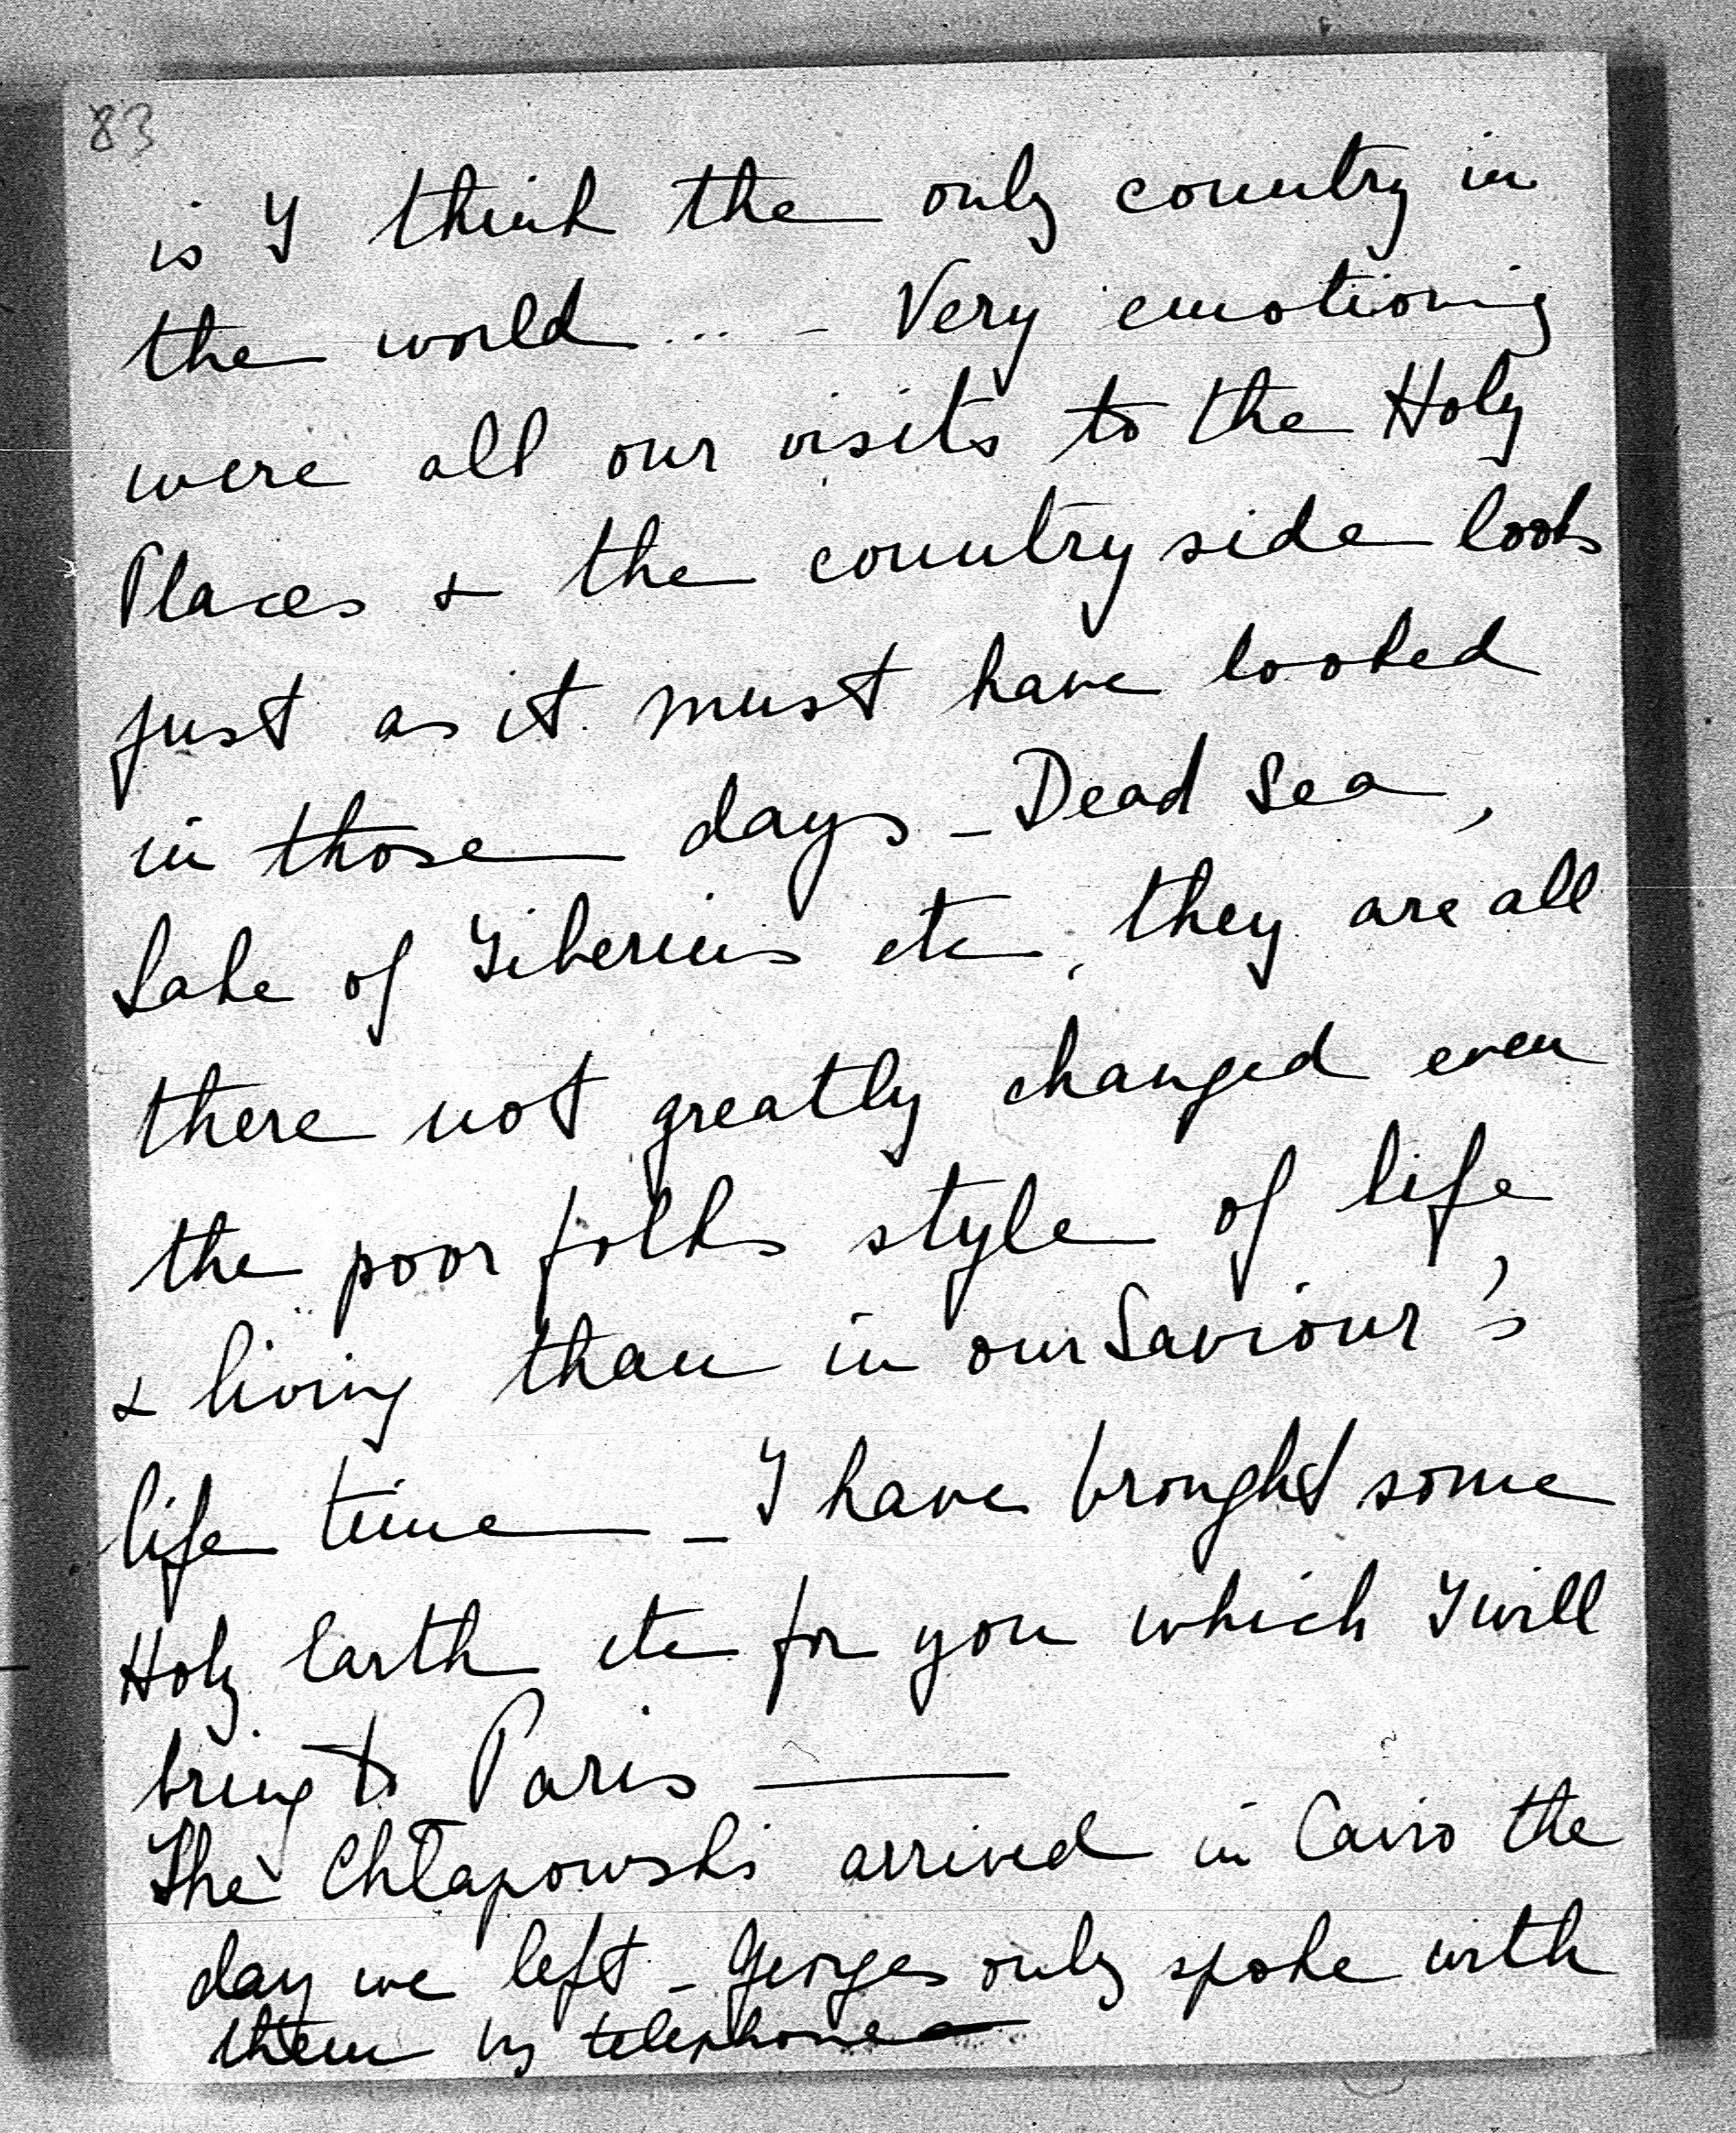 83
is I think the only country in
the world ... - Very emotioning
were all our visits to the Holy
Places & the country side looks
just as it must have looked
in those days - Dead Sea,
Lake of Tiberius etc, they are all
there not greatly changed even
the poor folks style of life
& living than in our Saviour's
life time - I have brought some
Holy Earth etc for you which I will
bring to Paris —
The Chłapowski arrived in Cairo the
day we left - Georges only spoke with
them by telephone —